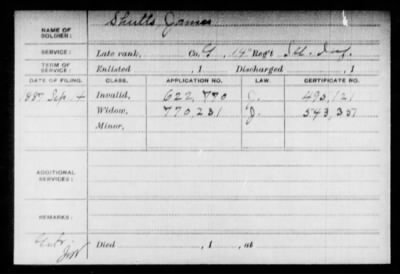 NAME OF SOLDIER: Shutts James
SERVICE: Late rank, Co. G, 14 Reg't Ill. Inf.
TERM OF SERVICE: Enlisted , 1 Discharged , 1
DATE OF FILING. CLASS. APPLICATION NO. LAW. CERTIFICATE NO.
Sep. 4 Invalid, 622,770 C. 493,121
Widow, 770,231 J. 543,351
Minor,
ADDITIONAL SERVICES:
REMARKS:
Died , 1 , at